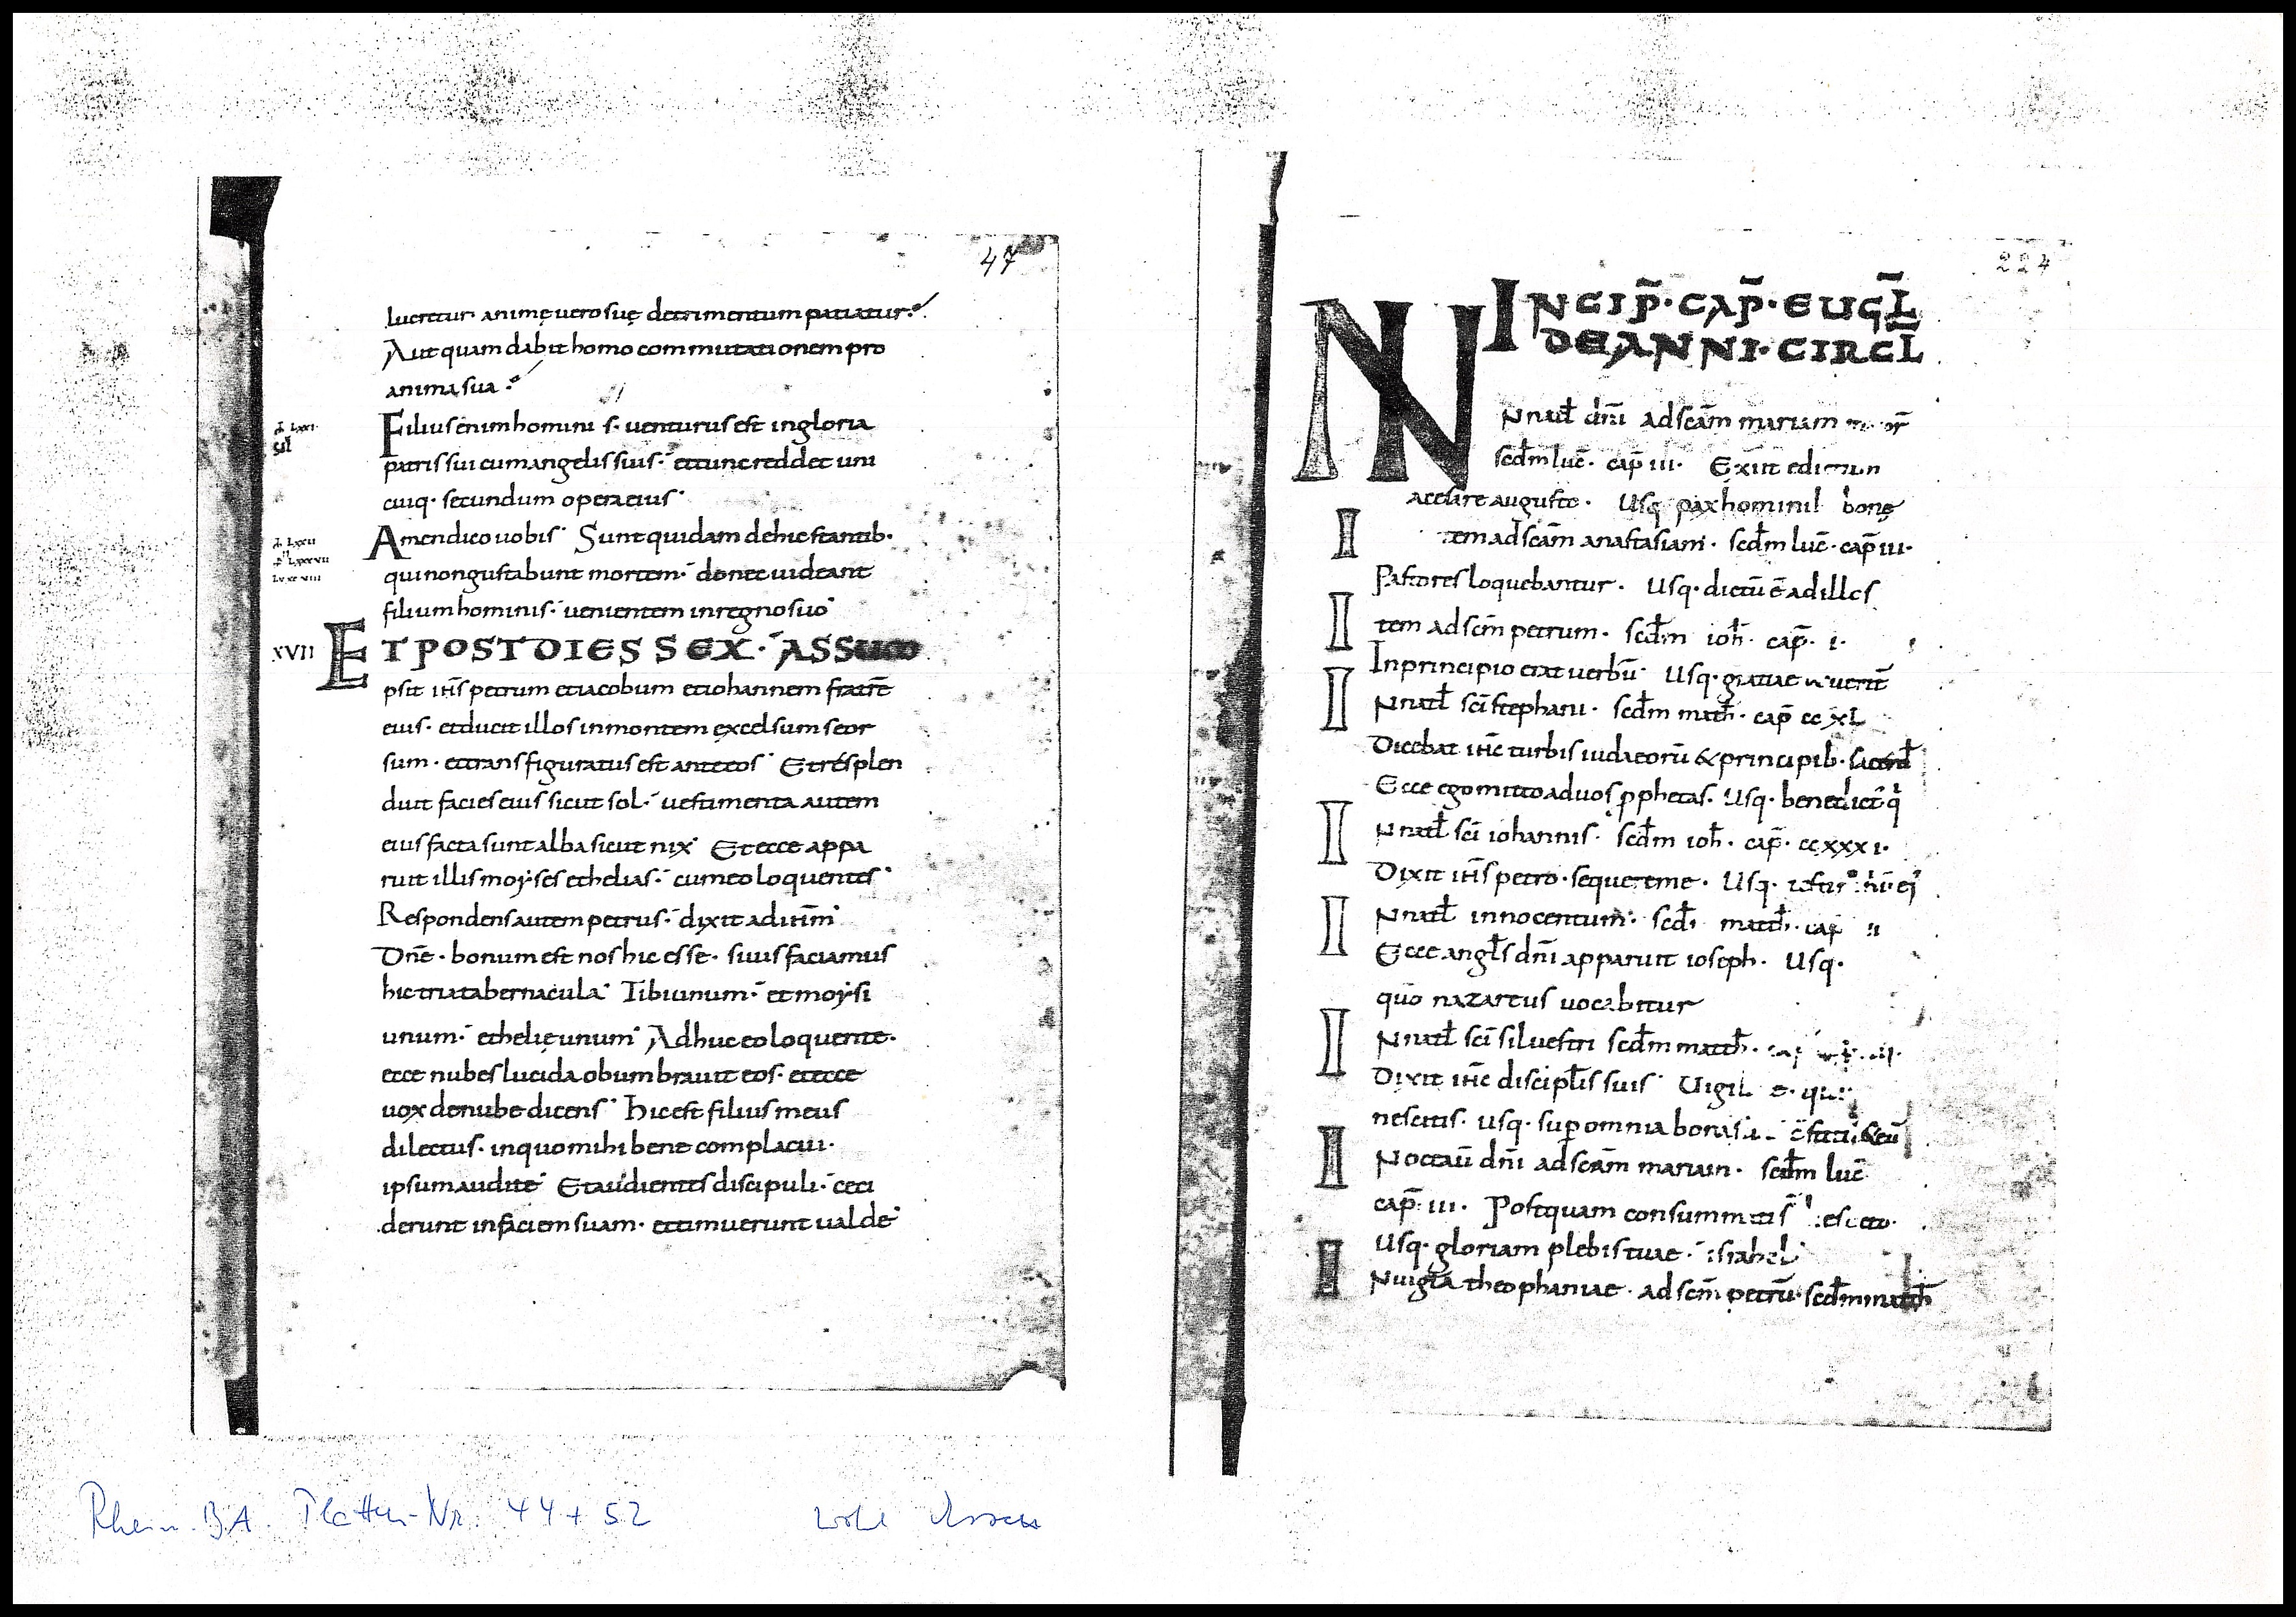 47
lucretur animę uero suę detrimentum patiatur.
Aut quam dabit homo commutationem pro
anima sua.
Filius enim hominis· uenturus est in gloria
patris sui cum angelis suis· et tunc reddet uni
cuiq· secundum opera eius·
Amen dico uobis· Sunt quidam de hic stantib·
qui non gustabunt mortem· donec uideant
filium hominis· uenientem in regno suo·
XVII ET POST DIES SEX· ASSUM
psit ihs petrum et iacobum et iohannem fratrē
eius· et ducit illos in montem excelsum seor
sum· et transfiguratus est ante eos· Et resplen
duit facies eius sicut sol· uestimenta autem
eius facta sunt alba sicut nix· Et ecce appa
ruit illis moyses et helias· cum eo loquentes·
Respondens autem petrus· dixit ad ihm·
Dnē· bonum est nos hic esse· si uis faciamus
hic tria tabernacula· Tibi unum· et moysi
unum· et helię unum· Adhuc eo loquente·
ecce nubes lucida obumbrauit eos· et ecce
uox de nube dicens· Hic est filius meus
dilectus· in quo mihi bene complacui·
ipsum audite· Et audientes discipuli· ceci
derunt in faciem suam· et timuerunt ualde·
224
INCIP̄· CAP̄· EUGL̄
DE ANNI· CIRCL̄
IN natł dn̄i ad scām mariam
scđm luc̄· cap̄ iii· Exiit edictum
a cesare auguste· Usq pax hominił bonę
Item ad scām anastasiam· scđm luc̄· cap̄ iii·
Pastores loquebantur· Usq· dictū ē ad illos
Item ad scm̄ petrum· scđm ioħ· cap̄· i·
In principio erat uerbū· Usq· gratiae & uerit̄
IN natł scī stephani· scđm math· cap̄ cc xl
Dicebat ihc turbis iudaeorū & principib· sacerd
Ecce ego mitto ad uos pphetas· Usq· benedict' q
IN natł scī iohannis· scđm ioħ· cap̄· cc xxx i·
Dixit ihs petro· sequere me· Usq·
IN natł innocentum· scđ· matth· cap ii
Ecce angls dn̄i apparuit ioseph· Usq·
quō nazareus uocabitur
IN natł scī siluestri scđm matth·
Dixit ihc discipłis suis· Uigil
nescitis· usq· sup omnia bona
IN octaū dn̄i ad scām mariam· scđm luc̄
cap̄· iii· Postquam consummati s
Usq· gloriam plebis tuae· israhel
IN uigła theophaniae· ad scm̄ petrū· scđm matth
Rhein. B.A. Platten-Nr. 44 + 52
wohl Essen